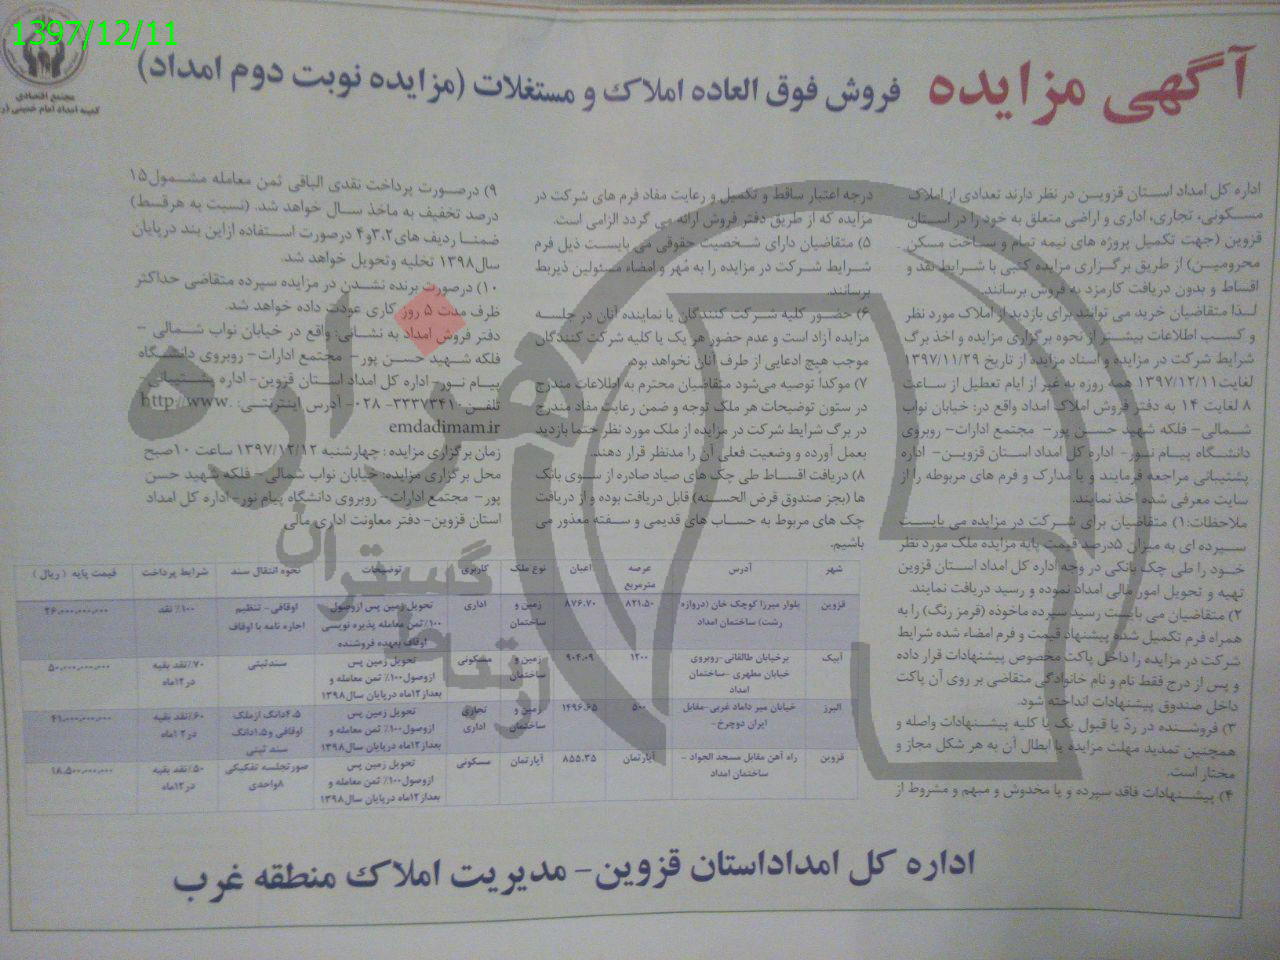 1397/12/11
مجتمع اقتصادی
کمیته امداد امام خمینی (ر
آگهی مزایده
فروش فوق العاده املاک و مستغلات (مزایده نوبت دوم امداد)
اداره کل امداد استان قزوین در نظر دارند تعدادی از املاک
مسکونی، تجاری، اداری و اراضی متعلق به خود را در استان
قزوین (جهت تکمیل پروژه های نیمه تمام و ساخت مسکن
محرومین) از طریق برگزاری مزایده کتبی با شرایط نقد و
اقساط و بدون دریافت کارمزد به فروش برسانند.
لذا متقاضیان خرید می توانند برای بازدید از املاک مورد نظر
و کسب اطلاعات بیشتر از نحوه برگزاری مزایده و اخذ برگ
شرایط شرکت در مزایده و اسناد مزایده از تاریخ ۱۳۹۷/۱۱/۲۹
لغایت۱۳۹۷/۱۲/۱۱ همه روزه به غیر از ایام تعطیل از ساعت
۸ لغایت ۱۴ به دفتر فروش املاک امداد واقع در: خیابان نواب
شمالی- فلکه شهید حسن پور- مجتمع ادارات- روبروی
دانشگاه پیام نور- اداره کل امداد استان قزوین- اداره
پشتیبانی مراجعه فرمایند و یا مدارک و فرم های مربوطه را از
سایت معرفی شده اخذ نمایند.
ملاحظات:۱) متقاضیان برای شرکت در مزایده می بایست
سپرده ای به میزان ۵درصد قیمت پایه مزایده ملک مورد نظر
خود را طی چک بانکی در وجه اداره کل امداد استان قزوین
تهیه و تحویل امور مالی امداد نموده و رسید دریافت نمایند.
۲) متقاضیان می بایست رسید سپرده ماخوذه (قرمز رنگ) را به
همراه فرم تکمیل شده پیشنهاد قیمت و فرم امضاء شده شرایط
شرکت در مزایده را داخل پاکت مخصوص پیشنهادات قرار داده
و پس از درج فقط نام و نام خانوادگی متقاضی بر روی آن پاکت
داخل صندوق پیشنهادات انداخته شود.
۳) فروشنده در ردّ یا قبول یک یا کلیه پیشنهادات واصله و
همچنین تمدید مهلت مزایده یا ابطال آن به هر شکل مجاز و
مختار است.
۴) پیشنهادات فاقد سپرده و یا مخدوش و مبهم و مشروط از
درجه اعتبار ساقط و تکمیل و رعایت مفاد فرم های شرکت در
مزایده که از طریق دفتر فروش ارائه می گردد الزامی است.
۵) متقاضیان دارای شخصیت حقوقی می بایست ذیل فرم
شرایط شرکت در مزایده را به مُهر و امضاء مسئولین ذیربط
برسانند.
۶) حضور کلیه شرکت کنندگان یا نماینده آنان در جلسه
مزایده آزاد است و عدم حضور هر یک یا کلیه شرکت کنندگان
موجب هیچ ادعایی از طرف آنان نخواهد بود.
۷) موکداً توصیه می‌شود متقاضیان محترم به اطلاعات مندرج
در ستون توضیحات هر ملک توجه و ضمن رعایت مفاد مندرج
در برگ شرایط شرکت در مزایده از ملک مورد نظر حتما بازدید
بعمل آورده و وضعیت فعلی آن را مدنظر قرار دهند.
۸) دریافت اقساط طی چک های صیاد صادره از سوی بانک
ها (بجز صندوق قرض الحسنه) قابل دریافت بوده و از دریافت
چک های مربوط به حساب های قدیمی و سفته معذور می
باشیم.
۹) درصورت پرداخت نقدی الباقی ثمن معامله مشمول۱۵
درصد تخفیف به ماخذ سال خواهد شد. (نسبت به هرقسط)
ضمنا ردیف های ۳،۲و۴ درصورت استفاده ازاین بند درپایان
سال۱۳۹۸ تخلیه وتحویل خواهد شد.
۱۰) درصورت برنده نشدن در مزایده سپرده متقاضی حداکثر
ظرف مدت ۵ روز کاری عودت داده خواهد شد.
دفتر فروش امداد به نشانی: واقع در خیابان نواب شمالی -
فلکه شهید حسن پور- مجتمع ادارات- روبروی دانشگاه
پیام نور- اداره کل امداد استان قزوین- اداره پشتیبانی
تلفن:۳۳۳۷۳۴۱۰ -۰۲۸- آدرس اینترنتی: http://www.
emdadimam.ir
زمان برگزاری مزایده : چهارشنبه ۱۳۹۷/۱۲/۱۲ ساعت ۱۰صبح
محل برگزاری مزایده: خیابان نواب شمالی- فلکه شهید حسن
پور- مجتمع ادارات- روبروی دانشگاه پیام نور- اداره کل امداد
استان قزوین- دفتر معاونت اداری مالی
هزاره
ارتباط گستران
شهر آدرس عرصه مترمربع اعیان نوع ملک کاربری توضیحات نحوه انتقال سند شرایط پرداخت قیمت پایه ( ریال )
قزوین بلوار میرزا کوچک خان (دروازه رشت) ساختمان امداد ۸۲۱.۵۰ ۸۷۶.۷۰ زمین و ساختمان اداری تحویل زمین پس ازوصول ۱۰۰٪ ثمن معامله پذیره نویسی اوقاف بعهده فروشنده اوقافی - تنظیم اجاره نامه با اوقاف ۱۰۰٪ نقد ۲۶,۰۰۰,۰۰۰,۰۰۰
آبیک برخیابان طالقانی-روبروی خیابان مطهری -ساختمان امداد ۱۲۰۰ ۹۰۴.۰۹ زمین و ساختمان مسکونی تحویل زمین پس ازوصول ۱۰۰٪ ثمن معامله و بعداز۱۲ماه درپایان سال۱۳۹۸ سندثبتی ۷۰٪نقد بقیه در۱۲ماه ۵۰,۰۰۰,۰۰۰,۰۰۰
البرز خیابان میر داماد غربی-مقابل ایران دوچرخ- ۵۰۰ ۱۴۹۶.۶۵ زمین و ساختمان تجاری اداری تحویل زمین پس ازوصول ۱۰۰٪ ثمن معامله و بعداز۱۲ماه درپایان سال۱۳۹۸ ۴.۵دانگ ازملک اوقافی و۱.۵دانگ سند ثبتی ۶۰٪نقد بقیه در۱۲ماه ۴۱,۰۰۰,۰۰۰,۰۰۰
قزوین راه آهن مقابل مسجد الجواد - ساختمان امداد آپارتمان ۸۵۵.۳۵ آپارتمان مسکونی تحویل زمین پس ازوصول ۱۰۰٪ ثمن معامله و بعداز۱۲ماه درپایان سال۱۳۹۸ صورتجلسه تفکیکی ۸واحدی ۵۰٪نقد بقیه در۱۲ماه ۱۸,۵۰۰,۰۰۰,۰۰۰
اداره کل امداداستان قزوین- مدیریت املاک منطقه غرب